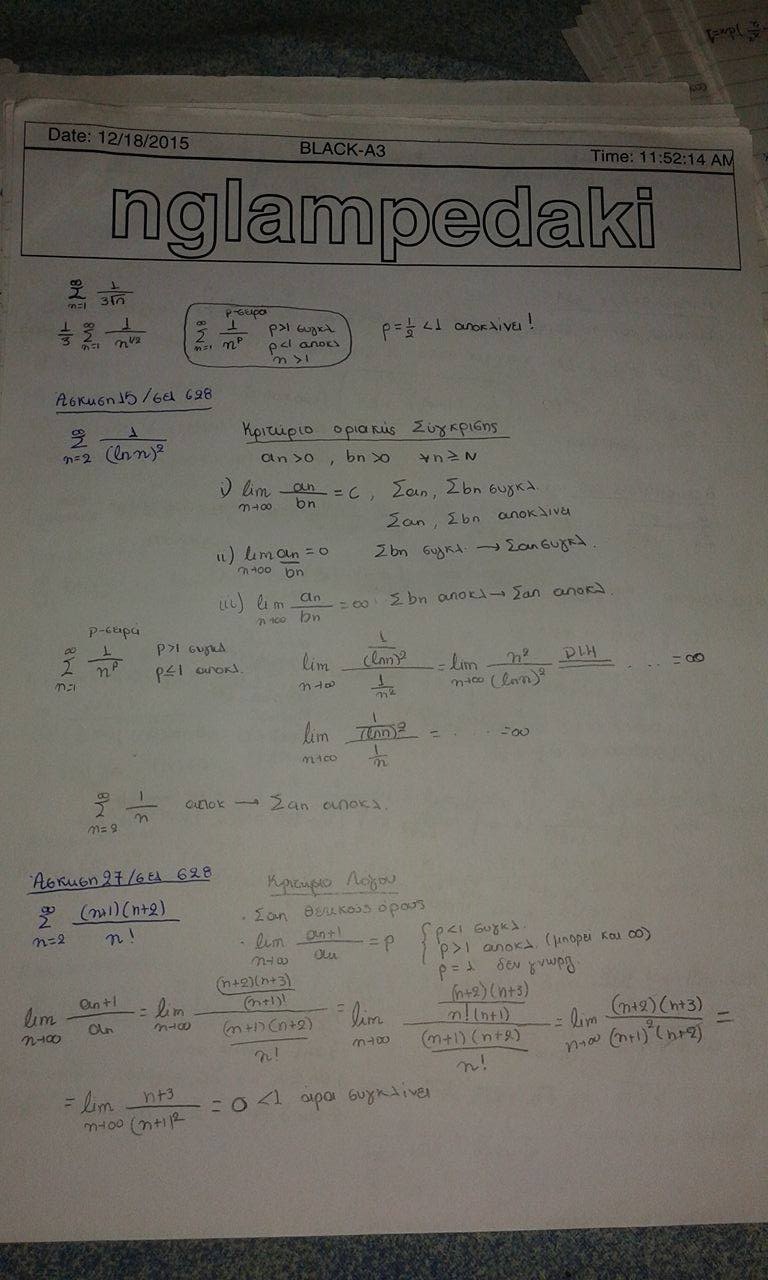 Date: 12/18/2015 BLACK-A3 Time: 11:52:14 AM
nglampedaki
∞ Σ n=1 1/3√n
1/3 ∞ Σ n=1 1/n^1/2
p-σειρά
∞ Σ n=1 1/n^p p>1 συγκλ
p<1 αποκλ
n>1
p=1/2 <1 αποκλίνει!
Άσκηση 15/σελ 628
∞ Σ n=2 1/(lnn)^2
Κριτήριο οριακής Σύγκρισης
an>0, bn>0 ∀n≥N
i) lim n→∞ an/bn = c, Σan, Σbn συγκλ.
Σan, Σbn αποκλίνει
ii) lim n→∞ an/bn = 0 Σbn συγκλ. → Σan συγκλ.
iii) lim n→∞ an/bn = ∞ Σbn αποκλ → Σan αποκλ.
p-σειρά
∞ Σ n=1 1/n^p p>1 συγκλ
p≤1 αποκλ.
lim n→∞ (1/(lnn)^2)/(1/n^2) = lim n→∞ n^2/(lnn)^2 DLH ... = ∞
lim n→∞ (1/(lnn)^2)/(1/n) = .... = ∞
∞ Σ n=2 1/n αποκ → Σan αποκλ.
Άσκηση 27/σελ 628
∞ Σ n=2 (n+1)(n+2)/n!
Κριτήριο Λόγου
· Σan θετικούς όρους
· lim n→∞ an+1/an = p { p<1 συγκλ.
p>1 αποκλ. (μπορεί και ∞)
p=1 δεν γνωρ.
lim n→∞ an+1/an = lim n→∞ ((n+2)(n+3)/(n+1)!)/((n+1)(n+2)/n!) = lim n→∞ ((n+2)(n+3)/n!(n+1))/((n+1)(n+2)/n!) = lim n→∞ (n+2)(n+3)/(n+1)^2(n+2) =
= lim n→∞ n+3/(n+1)^2 = 0 <1 άρα συγκλίνει